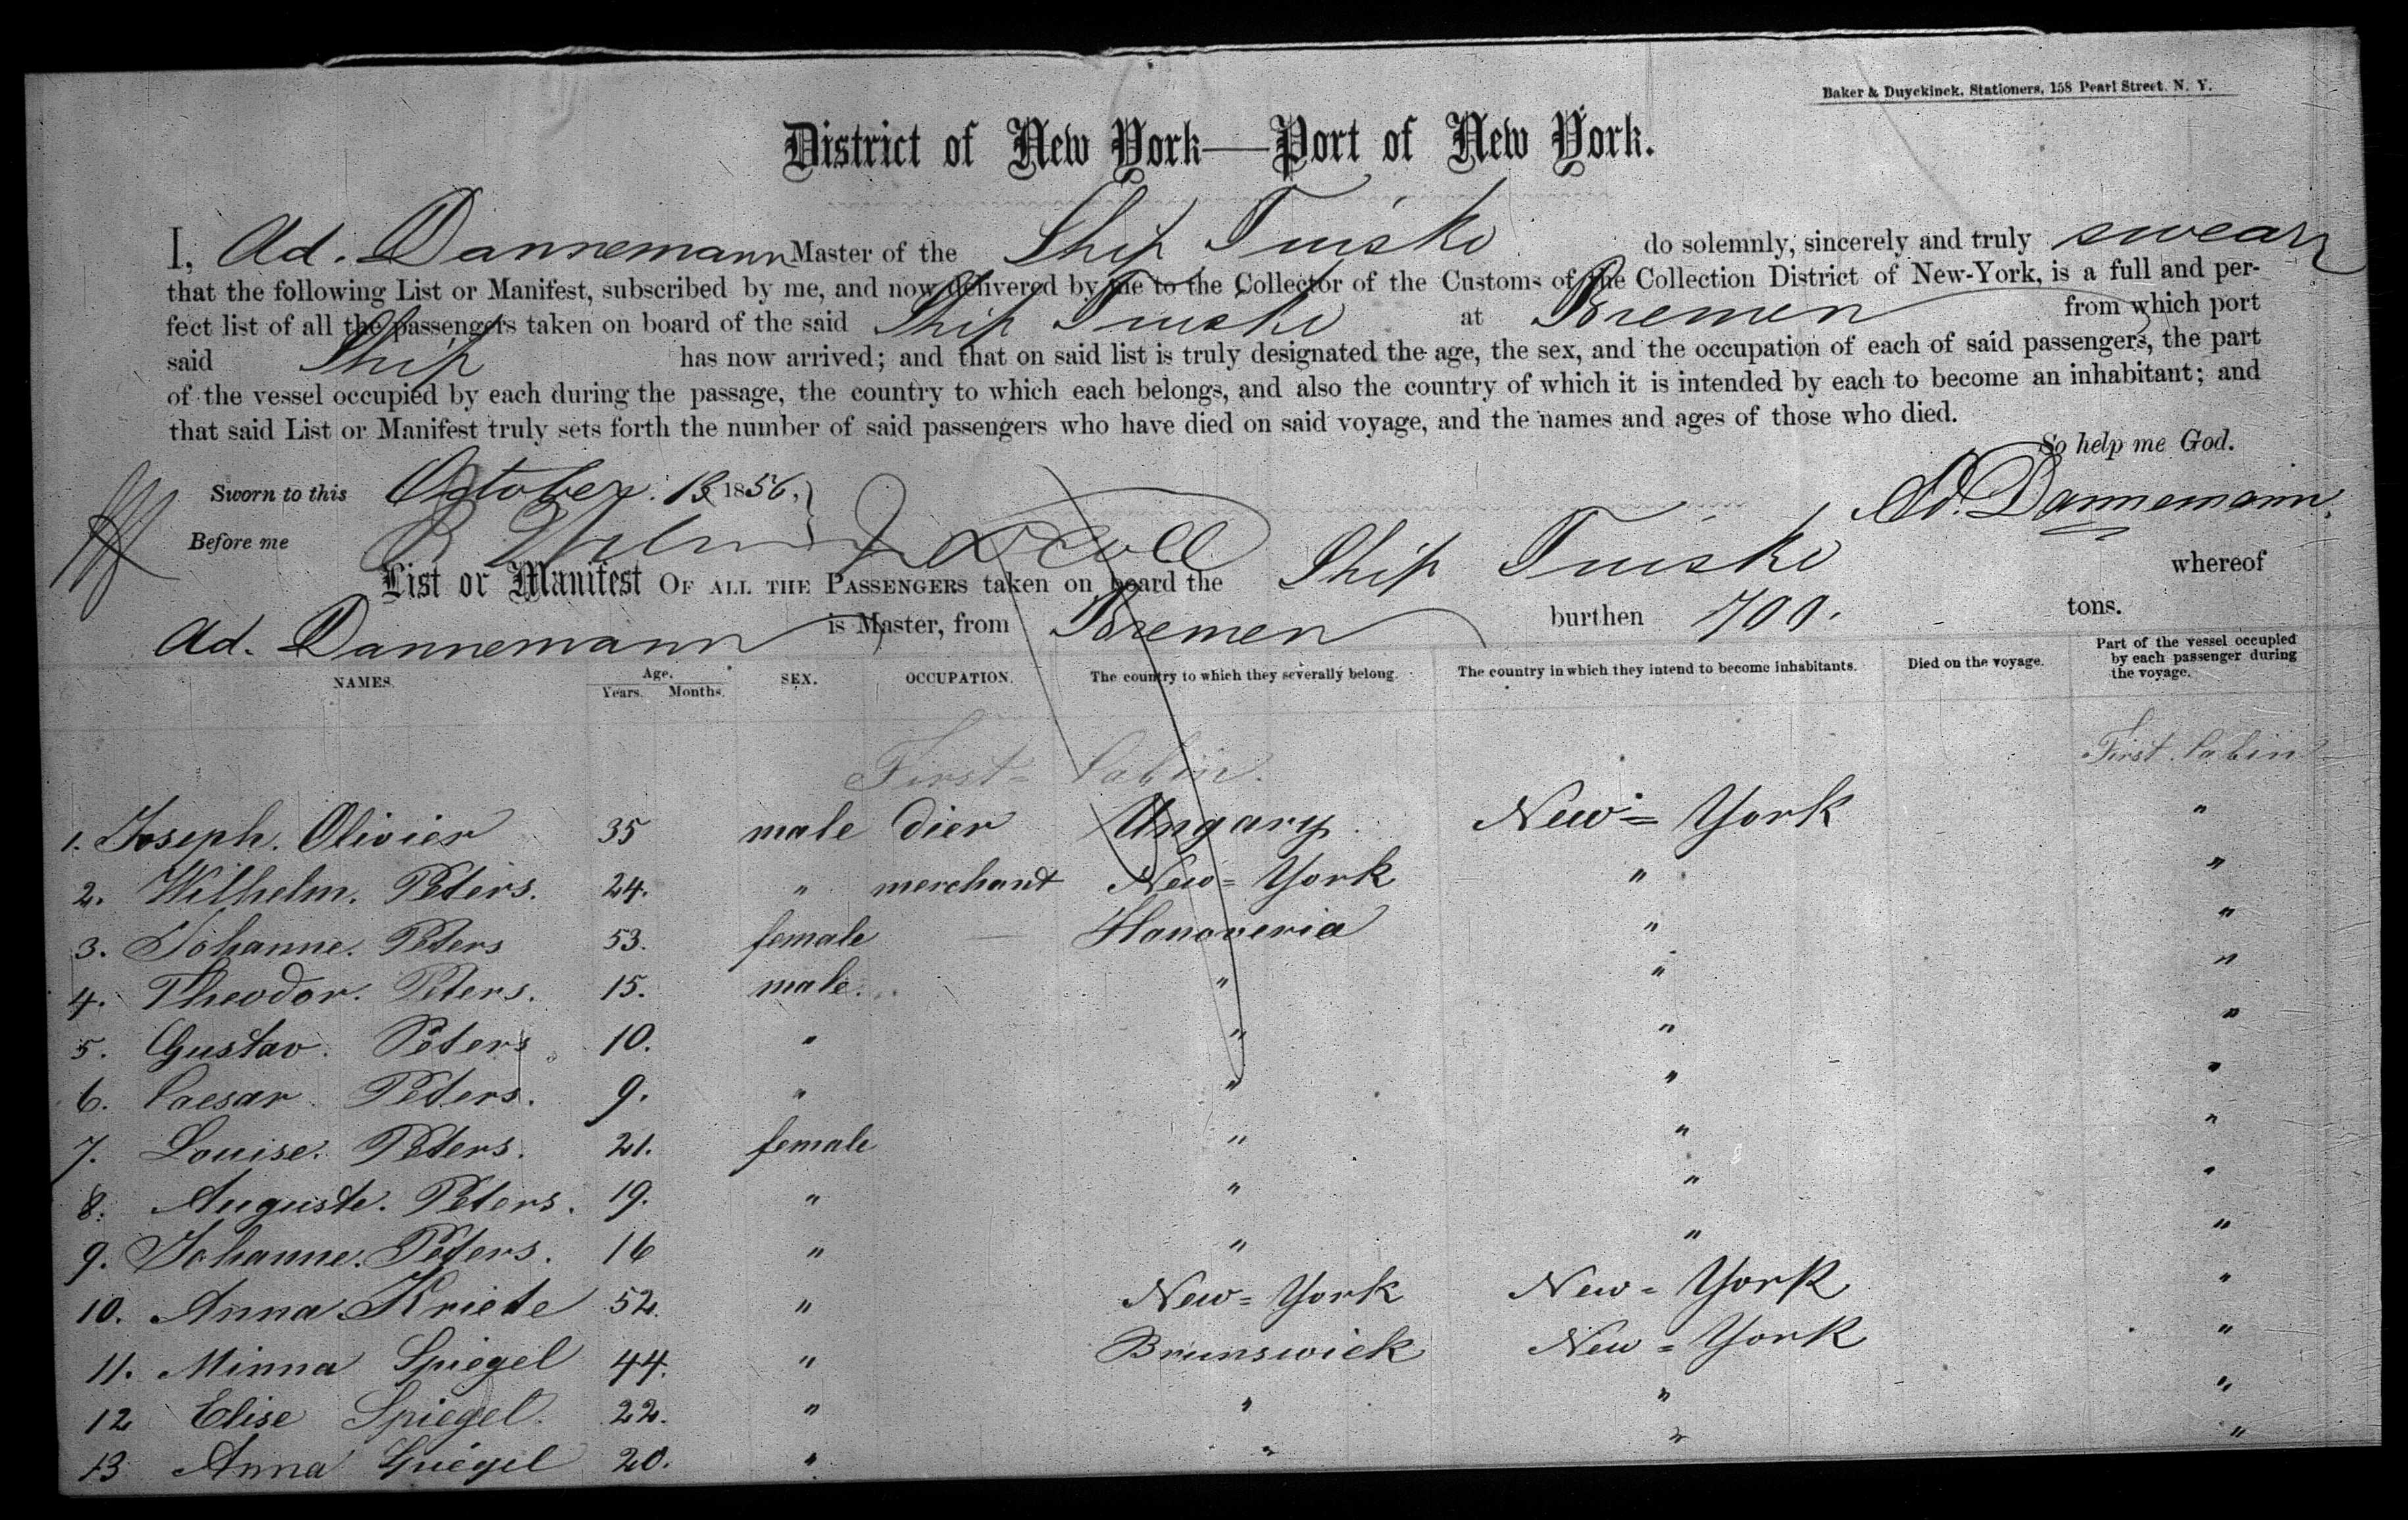 Baker & Duyckinck, Stationers, 158 Pearl Street, N. Y.
District of New York—Port of New York.
I, Ad. Dannemann Master of the Ship Tuisko do solemnly, sincerely and truly swear
that the following List or Manifest, subscribed by me, and now delivered by me to the Collector of the Customs of the Collection District of New-York, is a full and per-
fect list of all the passengers taken on board of the said Ship Tuisko at Bremen from which port
said Ship has now arrived; and that on said list is truly designated the age, the sex, and the occupation of each of said passengers, the part
of the vessel occupied by each during the passage, the country to which each belongs, and also the country of which it is intended by each to become an inhabitant; and
that said List or Manifest truly sets forth the number of said passengers who have died on said voyage, and the names and ages of those who died.
So help me God.
Sworn to this October 13 1856, Ad. Dannemann.
Before me
List or Manifest OF ALL THE PASSENGERS taken on board the Ship Tuisko whereof
Ad. Dannemann is Master, from Bremen burthen 700. tons.
NAMES. Age. Years. Months. SEX. OCCUPATION. The country to which they severally belong. The country in which they intend to become inhabitants. Died on the voyage. Part of the vessel occupied by each passenger during the voyage.
First=Cabin. First Cabin
1. Joseph. Olivier 35 male dier Ungary. New=York "
2. Wilhelm. Peters. 24. " merchant New=York " "
3. Johanne. Peters 53. female — Hanoveria " "
4. Theodor. Peters. 15. male. " " "
5. Gustav. Peters 10. " " " "
6. Caesar Peters. 9. " " " "
7. Louise. Peters. 21. female " " "
8. Auguste. Peters. 19. " " " "
9. Johanne. Peters. 16 " " " "
10. Anna Kriete 52. " New=York New=York "
11. Minna Spiegel 44. " Brunswick New=York "
12 Elise Spiegel. 22. " " " "
13 Anna Spiegel 20. " " " "